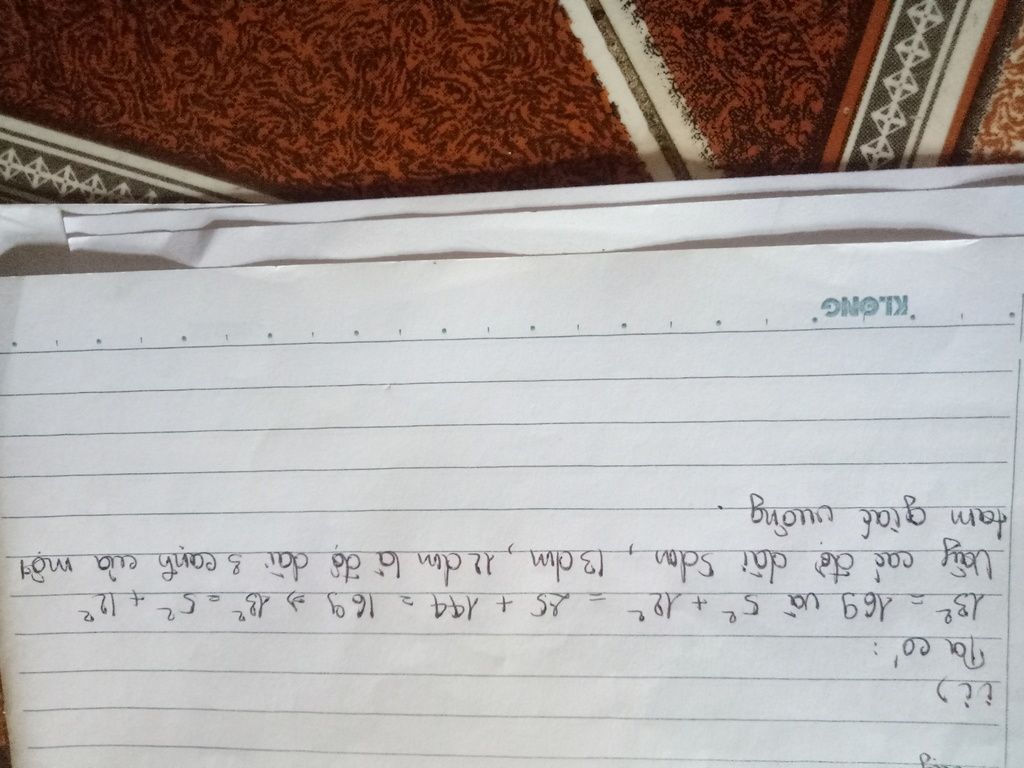 ii)
Ta có :
13² = 169 và 5² + 12² = 25 + 144 = 169 ⇒ 13² = 5² + 12²
Vậy các độ dài 5dm, 13dm, 12dm là độ dài 3 cạnh của một
tam giác vuông.
KLONG